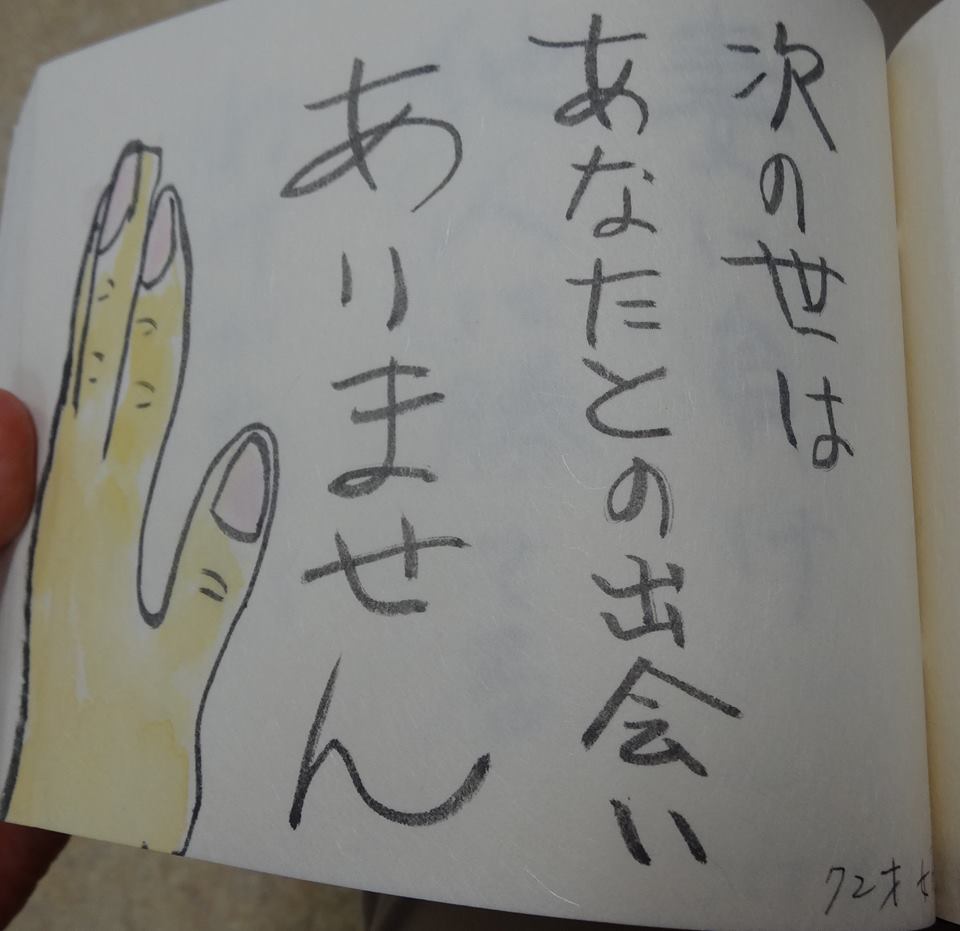 次の世は
あなたとの出会い
ありません
72才